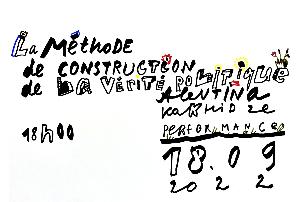 La MÉTHODE
de CONSTRUCTION
de La VÉRITÉ POLITIQUE
ALEVTINA
KAKHIDZE
PERFORMANCE
18h00
18.09
2022